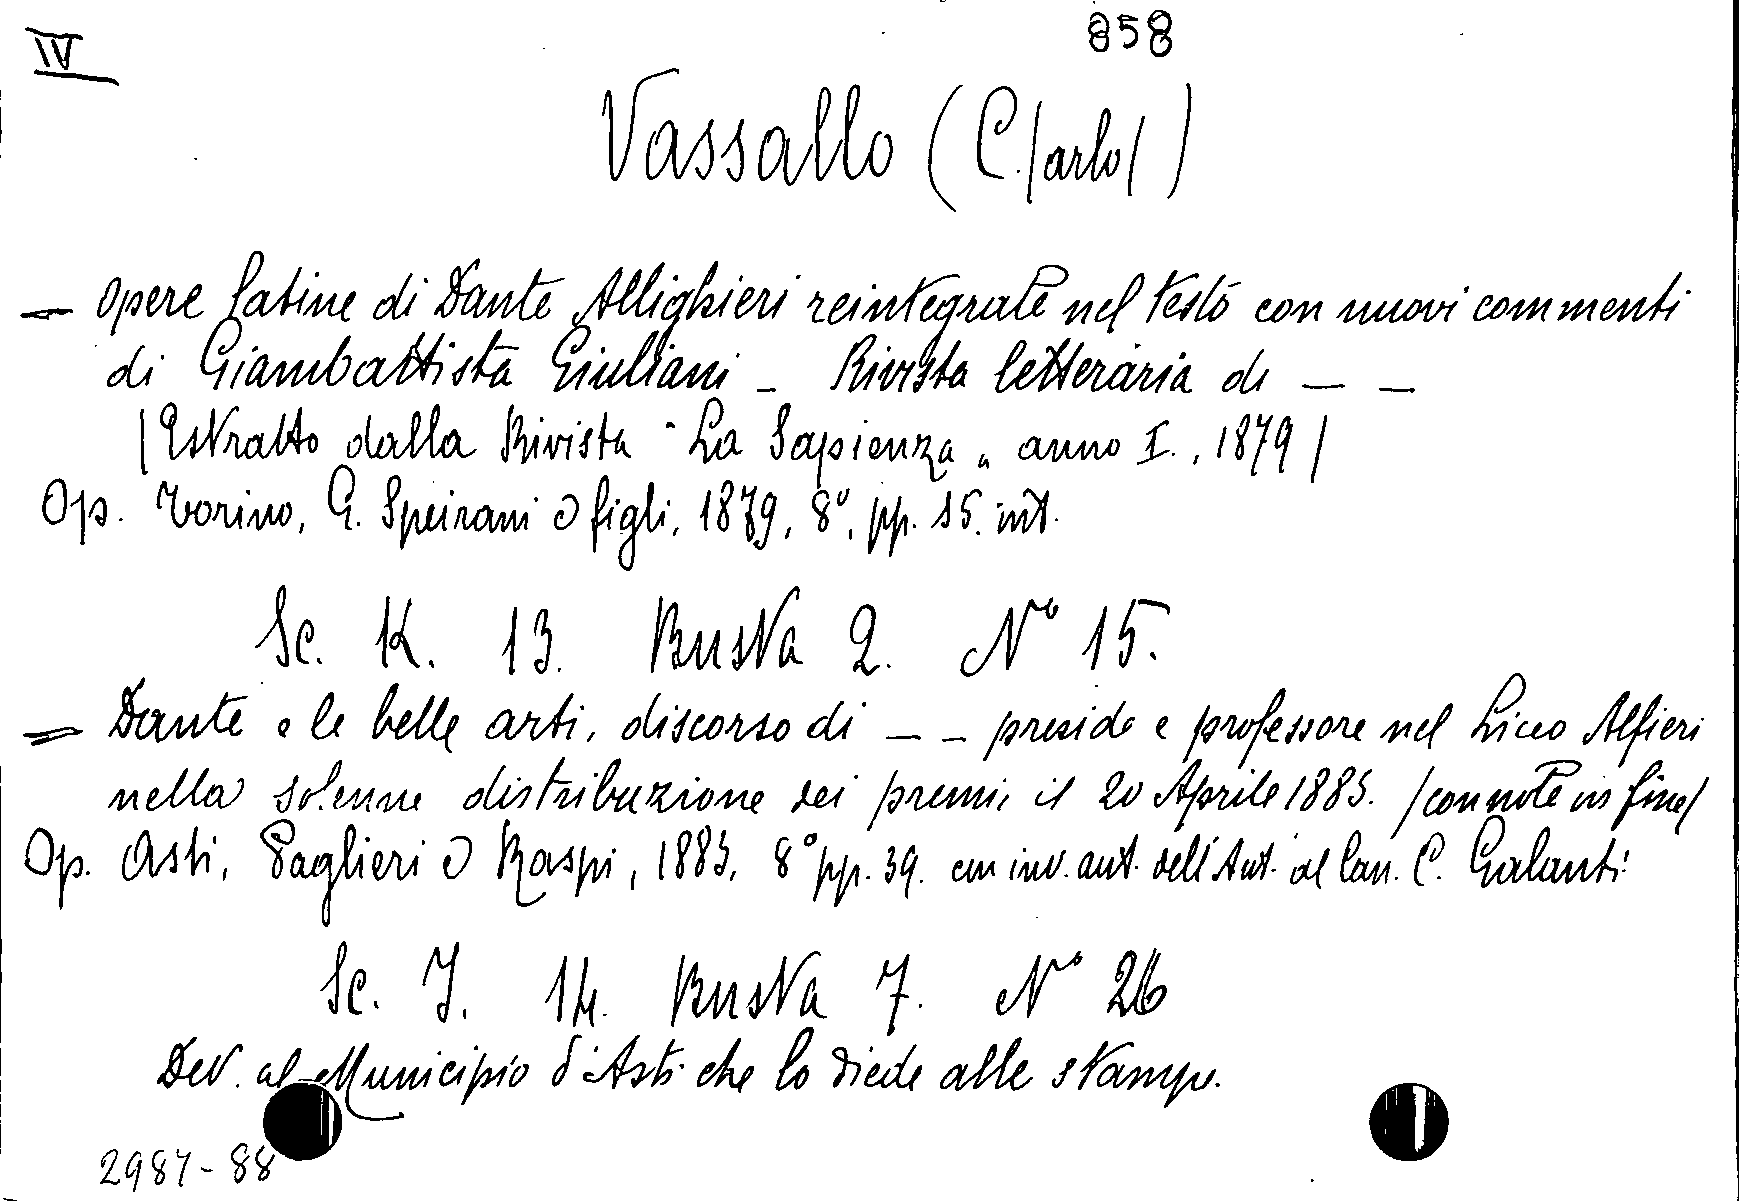 IV
858
Vassallo (C./arlo/)
— Opere latine di Dante Allighieri reintegrate nel testo con nuovi commenti
di Giambattista Giuliani – Rivista letteraria di — —
/Estratto dalla Rivista "La Sapienza„ anno I., 1879/
Op. Torino, G. Speirani e figli, 1879, 8°, pp. 15. int.
Sc. K. 13. Busta 2. N° 15.
= Dante e le belle arti, discorso di — — preside e professore nel Liceo Alfieri
nella solenne distribuzione dei premi, il 20 Aprile 1883. /con note in fine/
Op. Asti, Paglieri e Raspi, 1883, 8° pp. 39. con inv. aut. dell'Aut. al Can. C. Galanti.
Sc. J. 14. Busta 7. N° 26
Ded. al Municipio d'Asti che lo diede alle stampe.
2987-88